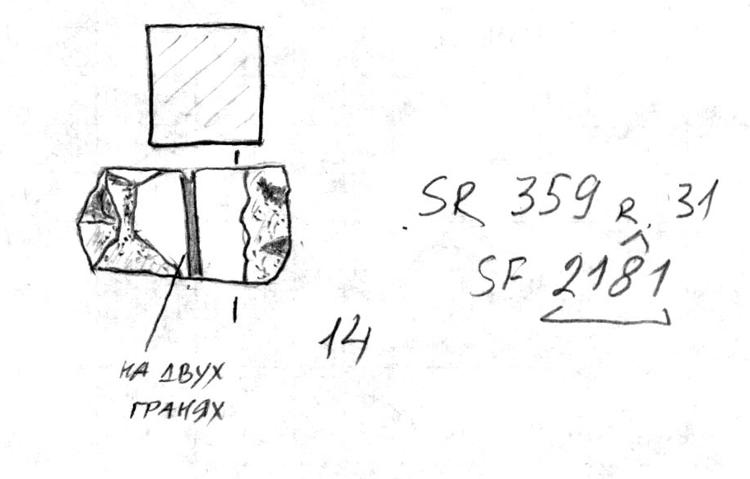 SR 359 R. 31
SF 2181
14
НА ДВУХ
ГРАНЯХ